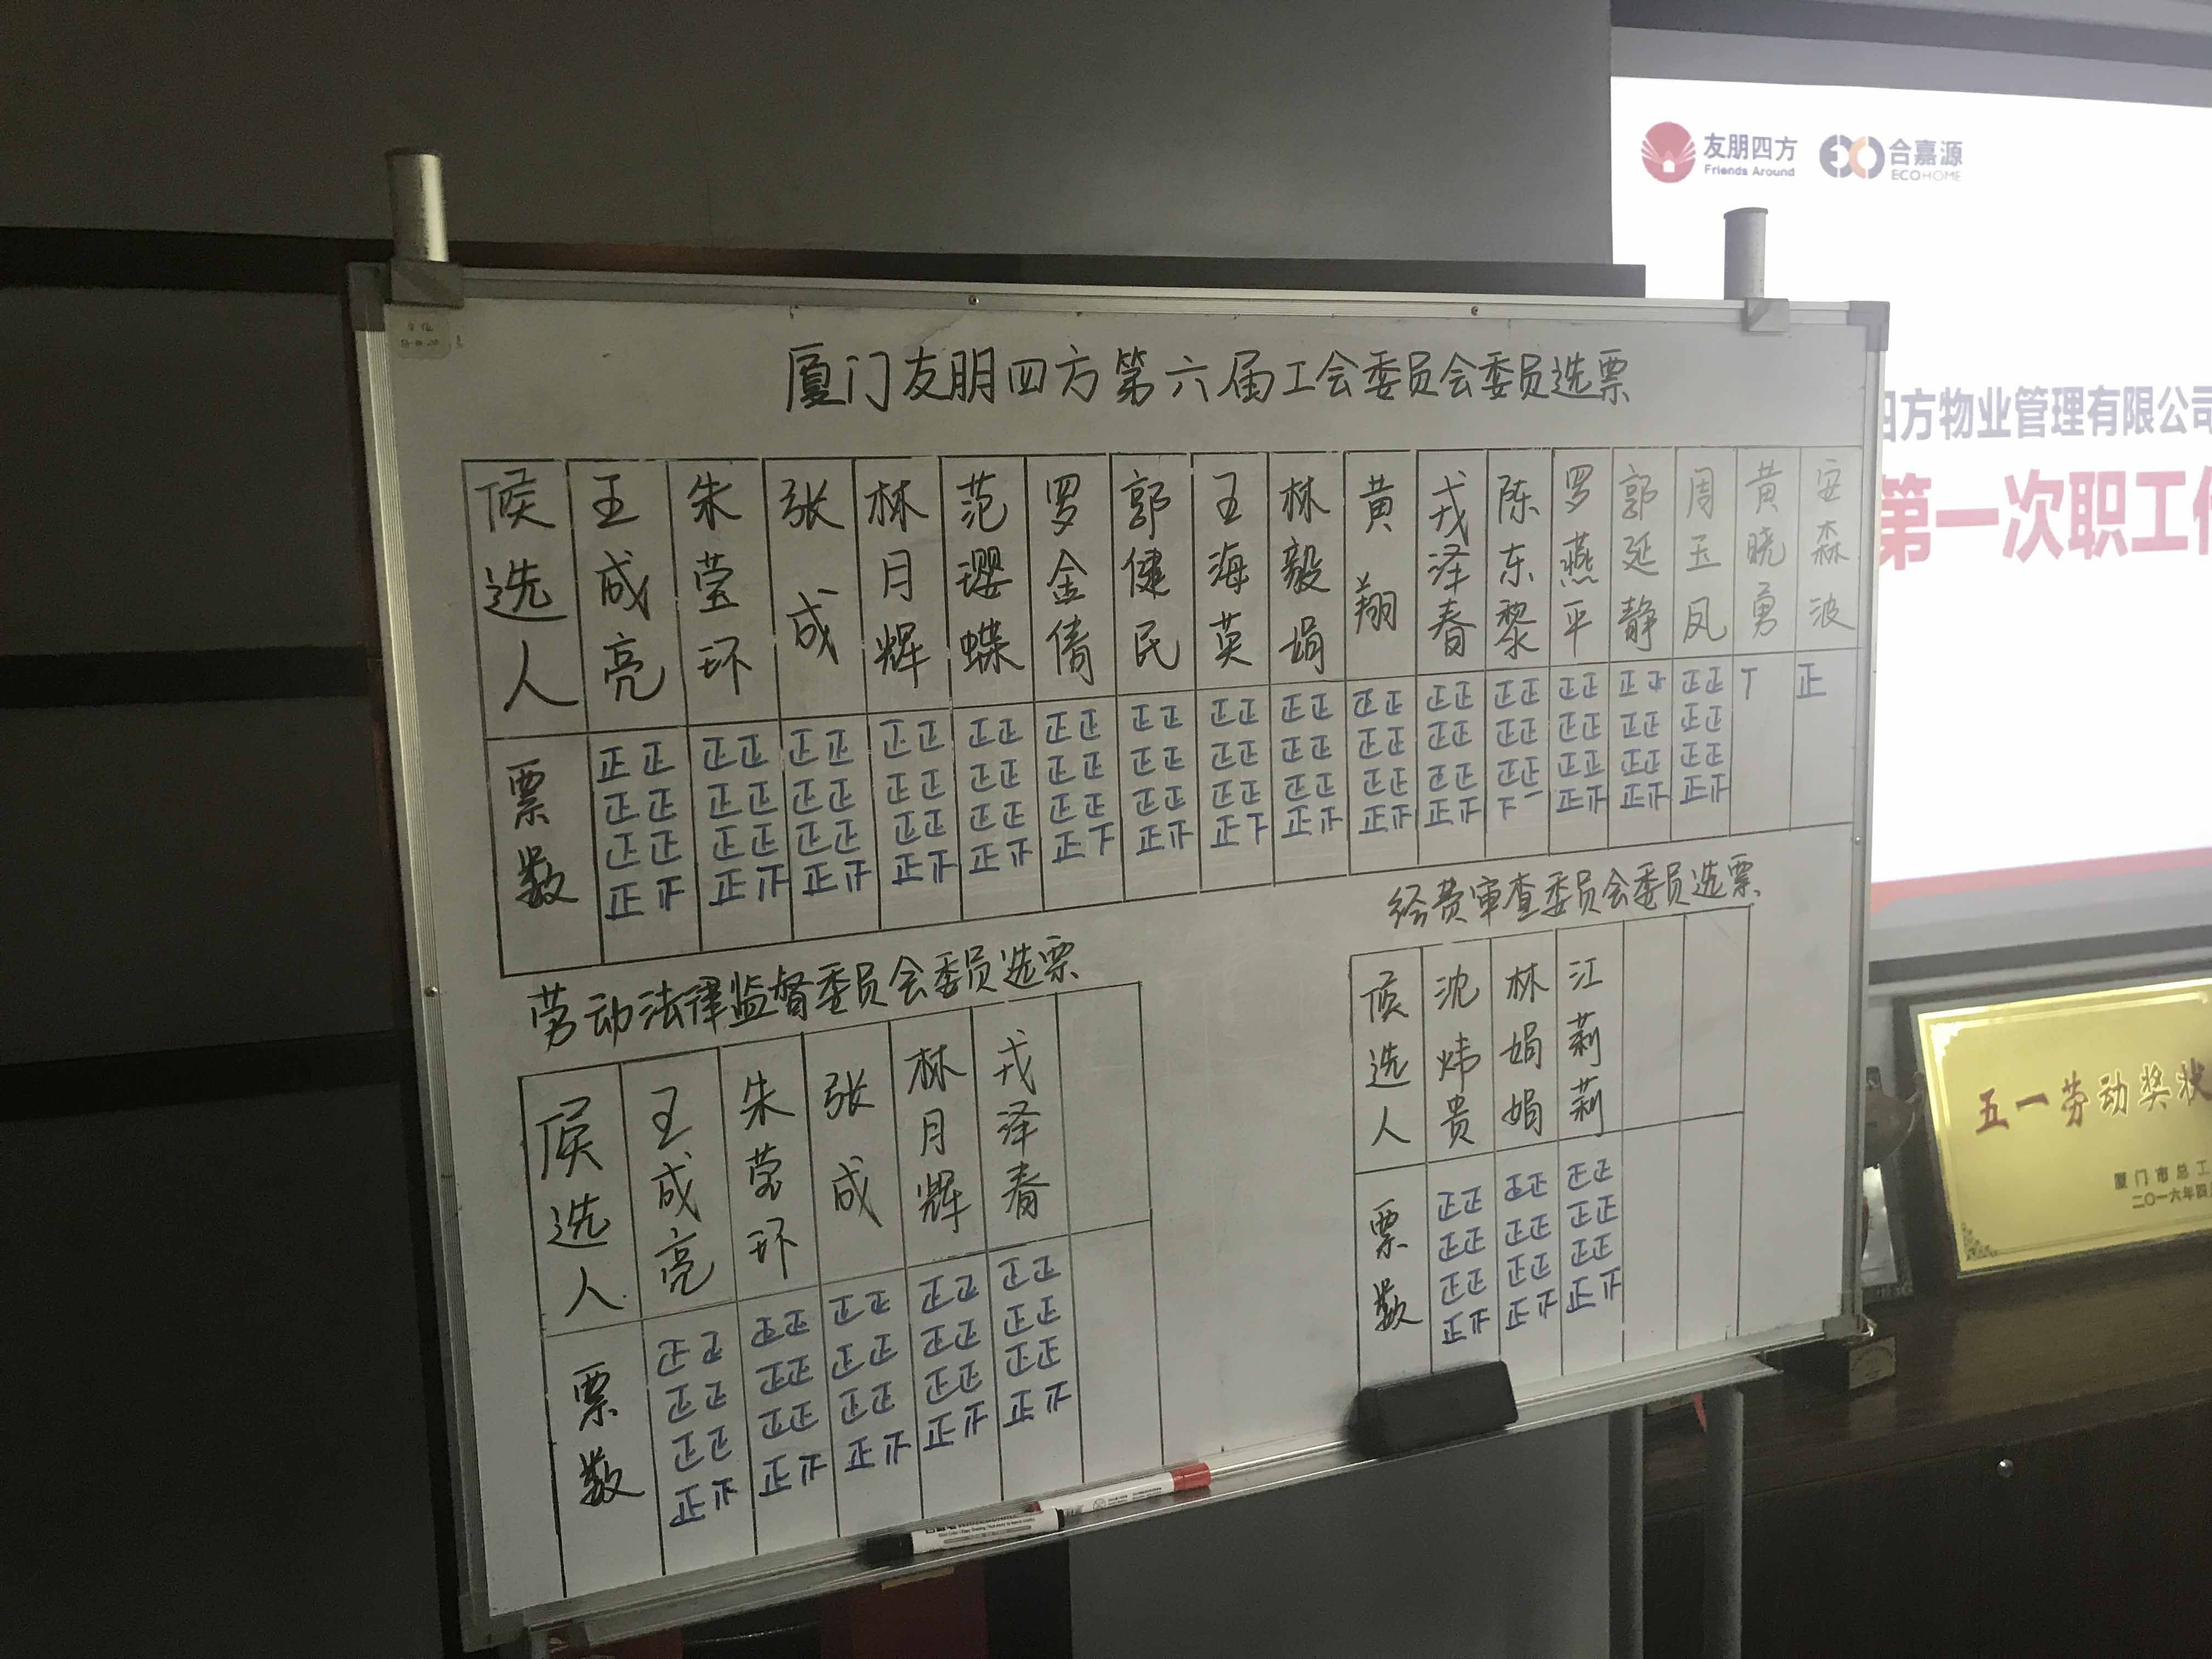 友朋四方
Friends Around
合嘉源
ECOHOME
四方物业管理有限公司
第一次职工
厦门友朋四方第六届工会委员会委员选票
候选人 王成亮 朱莹环 张成 林月辉 范璎蝶 罗金倩 郭健民 王海英 林毅娟 黄翔 戎泽春 陈东黎 罗燕平 郭延静 周玉凤 黄晓勇 安森波
票数 正正正正正正正 正正正正正正正 正正正正正正正 正正正正正正正 正正正正正正正 正正正正正正正 正正正正正正正 正正正正正正正 正正正正正正正 正正正正正正正 正正正正正正正 正正正正正正 正正正正正正正 正正正正正正 正正正正正正正 正
劳动法律监督委员会委员选票
候选人 王成亮 朱莹环 张成 林月辉 戎泽春
票数 正正正正正正正 正正正正正正正 正正正正正正正 正正正正正正正 正正正正正正正
经费审查委员会委员选票
候选人 沈炜贵 林娟娟 江莉莉
票数 正正正正正正正 正正正正正正正 正正正正正正正
五一劳动奖状
厦门市总工
二〇一六年四